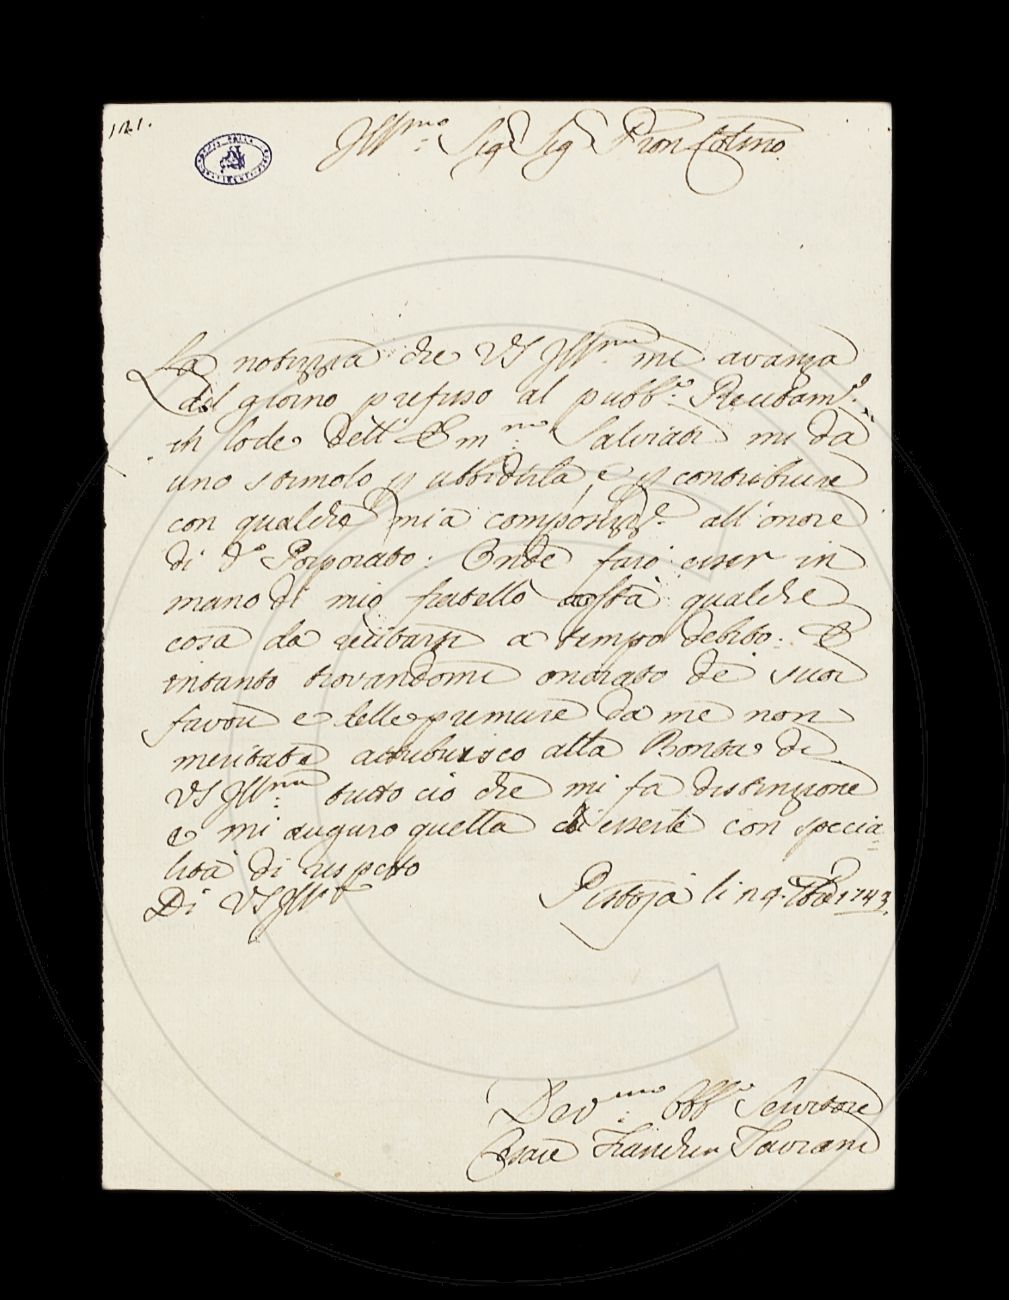 121.
Ill.mo Sig.r Sig.r Pron Col.mo
La notizzia che VS Ill.ma mi avanza
del giorno prefisso al pubb.o Recitam.o
in lode dell' Em.mo Salviati mi dà
uno stimolo p ubbidirla e p contribuire
con qualche mia composizz.e all'onore
di d.o Porporato: Onde farò esser in
mano di mio fratello costà qualche
cosa da recitarsi a tempo debito. E
intanto trovandomi onorato de suoi
favori e delle premure da me non
meritate attribuisco alla Bontà di
VS Ill.ma tutto ciò che mi fa distinzione
e mi auguro quella di esserle con specia
lità di rispetto
Di VS Ill.ma
Pistoja li 1743.
Dev.mo Obb.o Servitore
Cesare Franchini Taviani